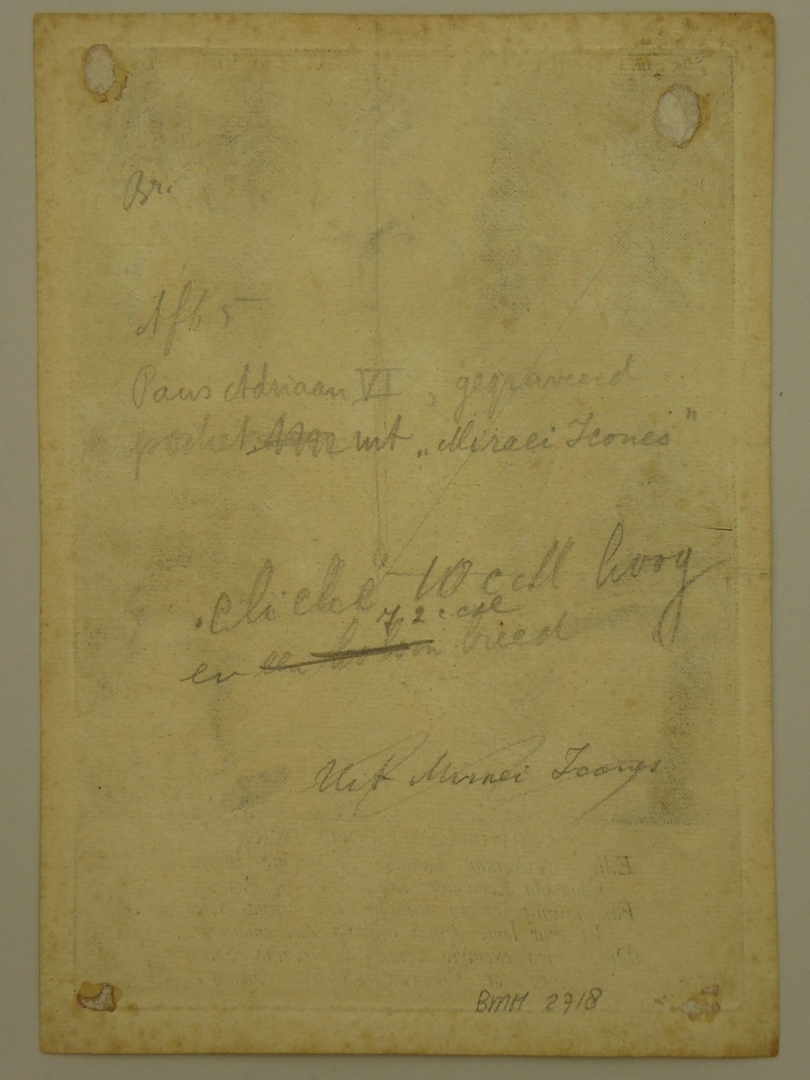 Br.
Afb 5
Paus Adriaan VI, gegraveerd
portret uit „Miraei Icones"
cliché 10 cM hoog
7 2 cM
en breed
Uit Miraei Icones
BMH 2718